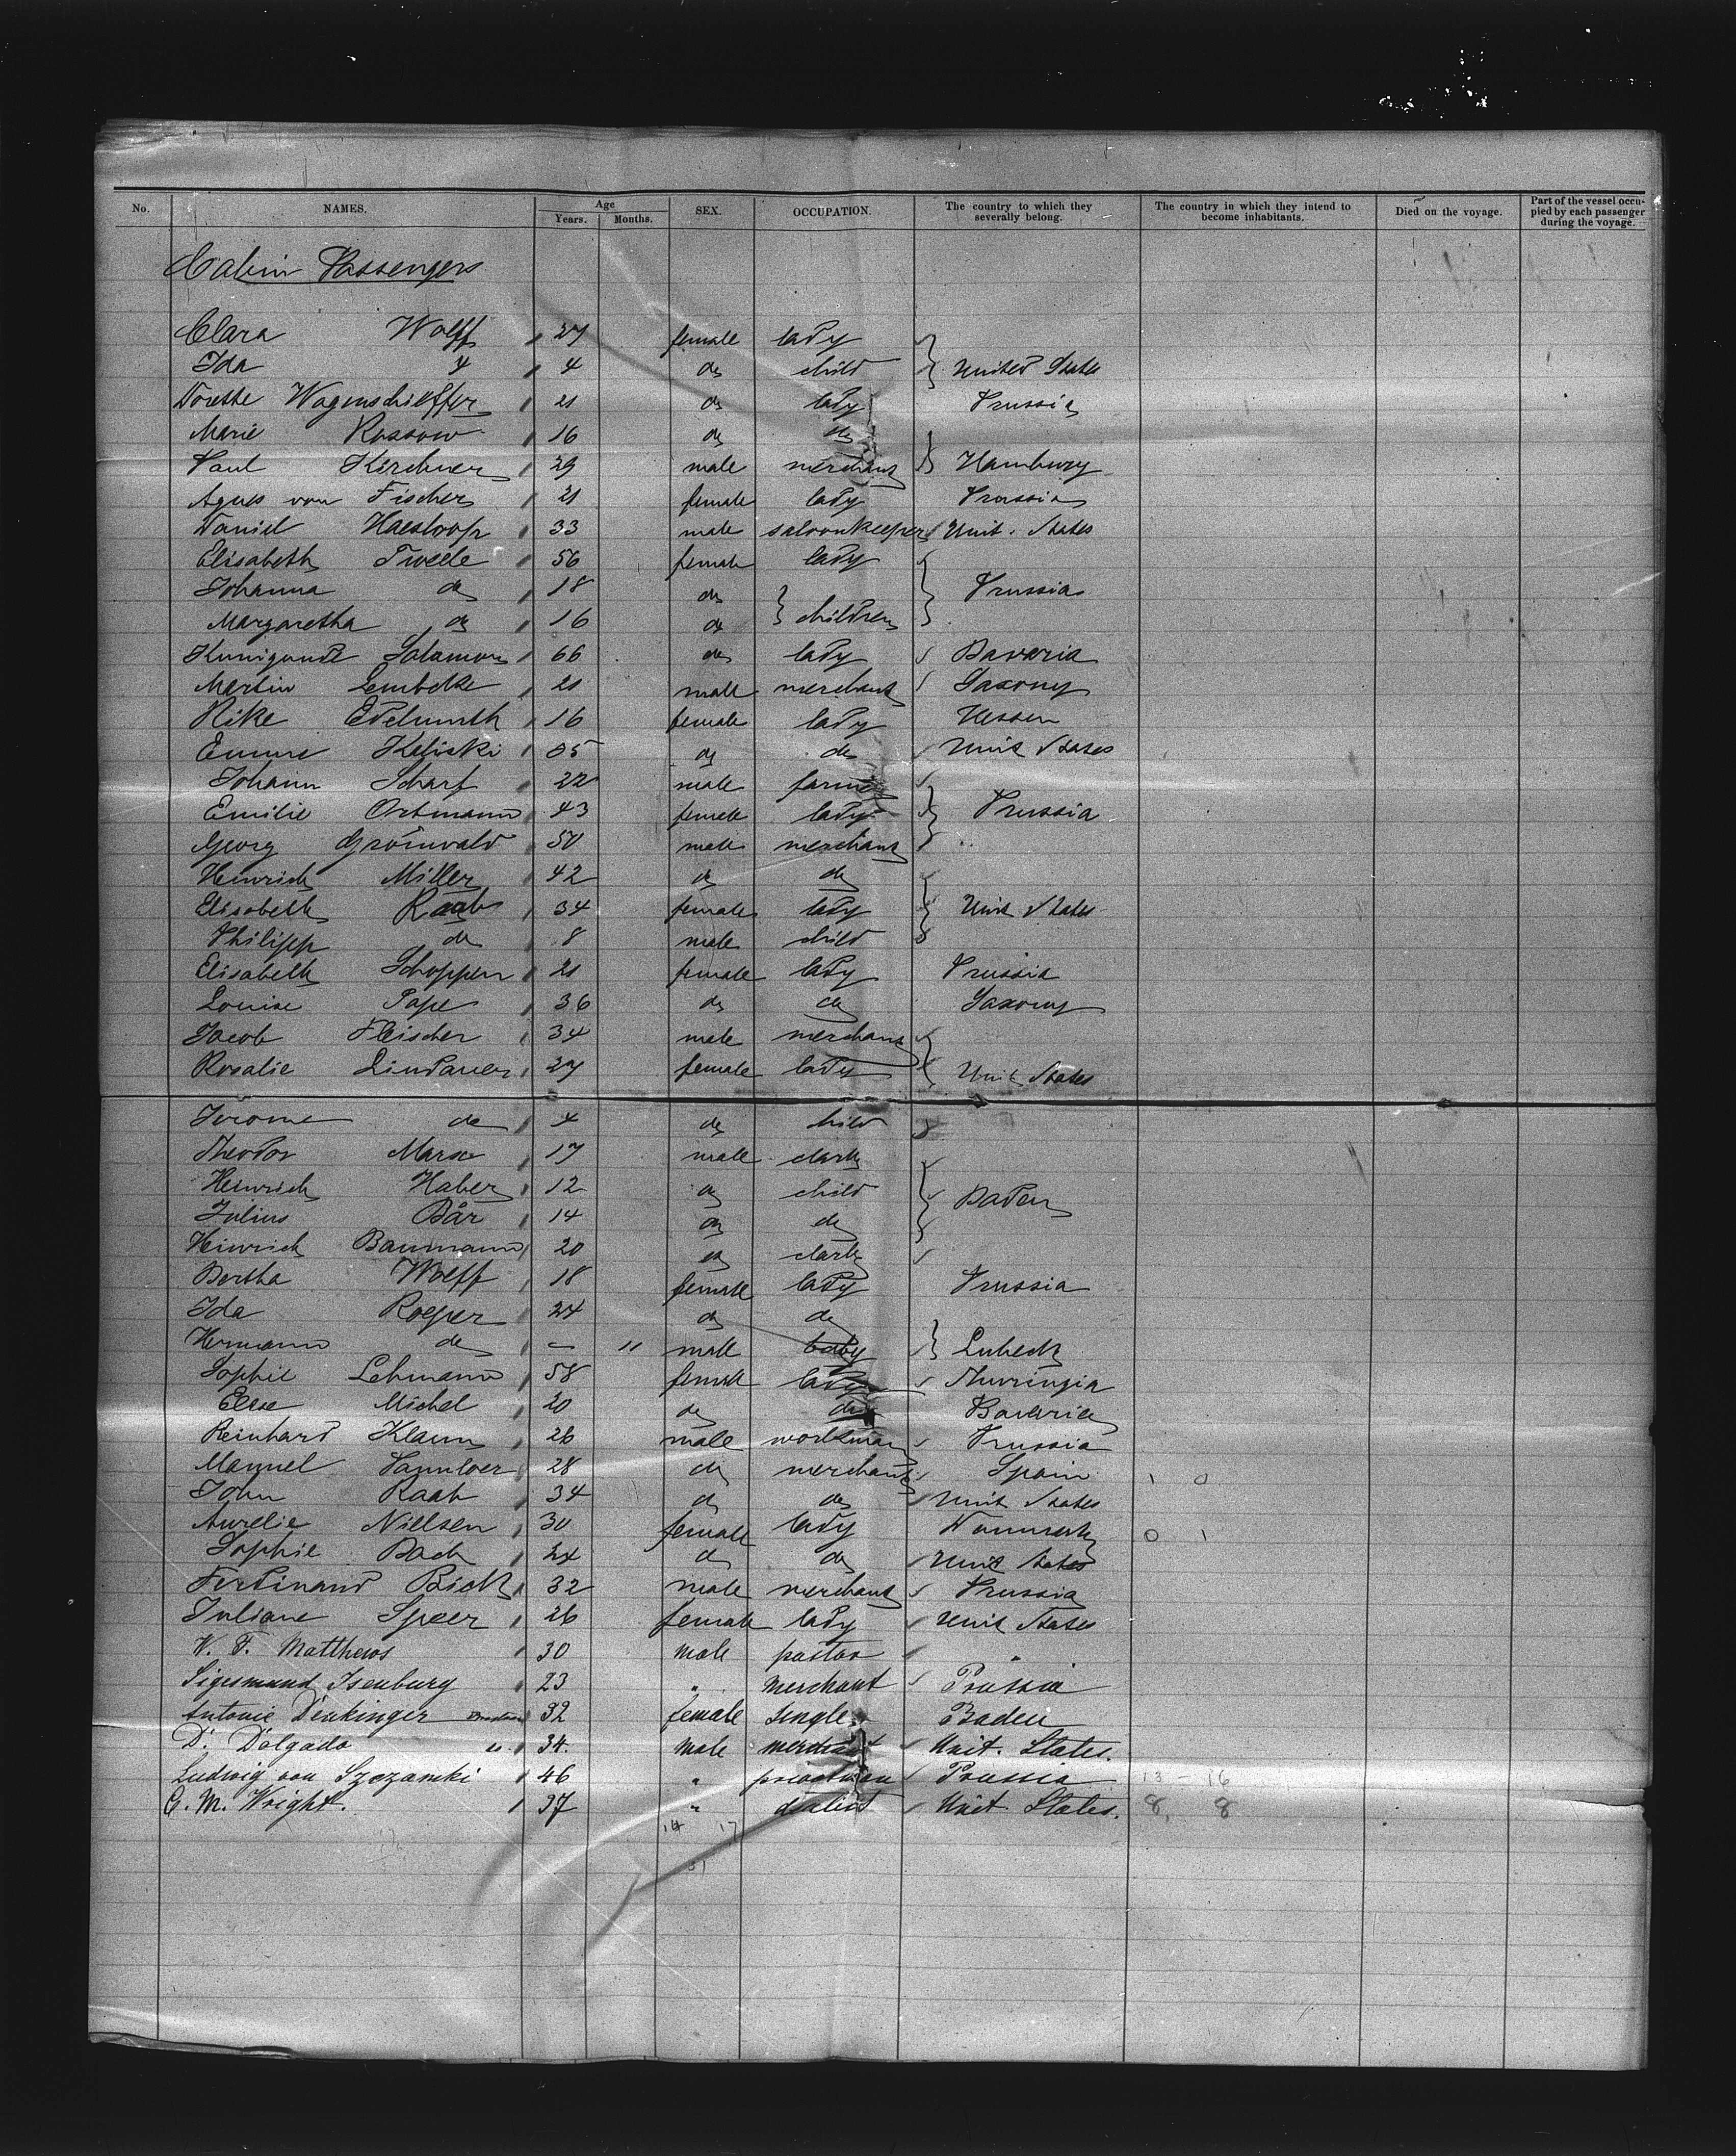 No. NAMES. Age Years. Months. SEX. OCCUPATION. The country to which they severally belong. The country in which they intend to become inhabitants. Died on the voyage. Part of the vessel occupied by each passenger during the voyage.
Cabin Passengers
Clara Wolff 27 female lady
Ida 4 do child } United States
Dorette Wagenschieffer 21 do lady Prussia
Marie Rossow 16 do do
Paul Kirchner 29 male merchant } Hamburg
Agnes von Fischer 21 female lady Prussia
Daniel Haesloop 33 male saloonkeeper Unit. States
Elisabeth Tweele 56 female lady
Johanna do 18 do Prussia
Margaretha do 16 do } children
Kunigunde Salamon 66 do lady Bavaria
Martin Lembcke 21 male merchant Saxony
Rike Edelmuth 16 female lady Hessen
Emme Keliski 35 do do Unit States
Johann Scharf 22 male farmer
Emilie Ortmann 43 female lady } Prussia
Georg Grönwald 50 male merchant
Heinrich Miller 42 do do
Elisabeth Raab 34 female lady } Unit States
Philipp do 8 male child
Elisabeth Schoppen 21 female lady Prussia
Louise Pape 36 do do Saxony
Jacob Fleischer 34 male merchant
Rosalie Lindauer 27 female lady } Unit States
Jerome do 4 do child
Theodor Marx 17 male clark
Heinrich Haber 12 do child } Baden
Julius Bär 14 do do
Heinrich Baumann 20 do clark
Bertha Wolff 18 female lady Prussia
Ida Roeper 24 do do
Hermann do — 11 male baby } Lubeck
Sophie Lehmann 58 female lady Thuringia
Else Michel 20 do do Bavaria
Reinhard Klamm 26 male workman Prussia
Manuel 28 do merchant Spain 1 0
John Raab 34 do do Unit States
Aurelie Nielsen 30 female lady Danmark 0 1
Sophie Bach 24 do do Unit States
Ferdinand Bick 32 male merchant Prussia
Juliane Speer 26 female lady Unit States
W. F. Matthews 30 male pastor "
Sigesmund Isenburg 23 " merchant Prussia
Antonie Denkinger 32 female single Baden
D. Dolgado do. 34. male merchant Unit. States.
Ludwig von Szczanski 46 " Prussia 13 - 16
C. M. Wright. 37 " Unit States. 8, 8
14 17
31